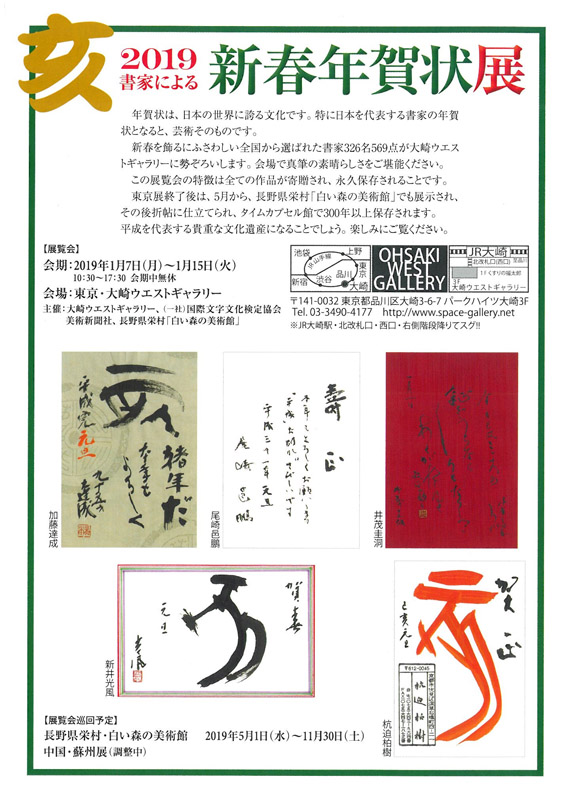 亥
2019
書家による
新春年賀状展
年賀状は、日本の世界に誇る文化です。特に日本を代表する書家の年賀
状となると、芸術そのものです。
新春を飾るにふさわしい全国から選ばれた書家326名569点が大崎ウエス
トギャラリーに勢ぞろいします。会場で真筆の素晴らしさをご堪能ください。
この展覧会の特徴は全ての作品が寄贈され、永久保存されることです。
東京展終了後は、5月から、長野県栄村「白い森の美術館」でも展示され、
その後折帖に仕立てられ、タイムカプセル館で300年以上保存されます。
平成を代表する貴重な文化遺産になることでしょう。楽しみにご覧ください。
【展覧会】
会期：2019年1月7日(月)～1月15日(火)
10:30～17:30 会期中無休
会場：東京・大崎ウエストギャラリー
主催：大崎ウエストギャラリー、(一社)国際文字文化検定協会
美術新聞社、長野県栄村「白い森の美術館」
池袋
上野
JR山手線
東京
新宿
渋谷
品川
大崎
OHSAKI
WEST
GALLERY
JR大崎
北改札口(西口)
至品川
1Fくすりの福太郎
3F
大崎ウエストギャラリー
〒141-0032 東京都品川区大崎3-6-7 パークハイツ大崎3F
Tel. 03-3490-4177 http://www.space-gallery.net
※JR大崎駅・北改札口・西口・右側階段降りてスグ!!
亥
猪年だ
ことしも
よろしく
平成完
元旦
九十五
達成
加藤達成
壽正
本年もよろしくお願いします
平成三十一年元旦
尾崎邑鵬
尾崎邑鵬
井茂圭洞
賀春
元旦
光風
新井光風
賀正
己亥元旦
〒612-0045
杭迫柏樹
杭迫柏樹
【展覧会巡回予定】
長野県栄村・白い森の美術館 2019年5月1日(水)～11月30日(土)
中国・蘇州展(調整中)